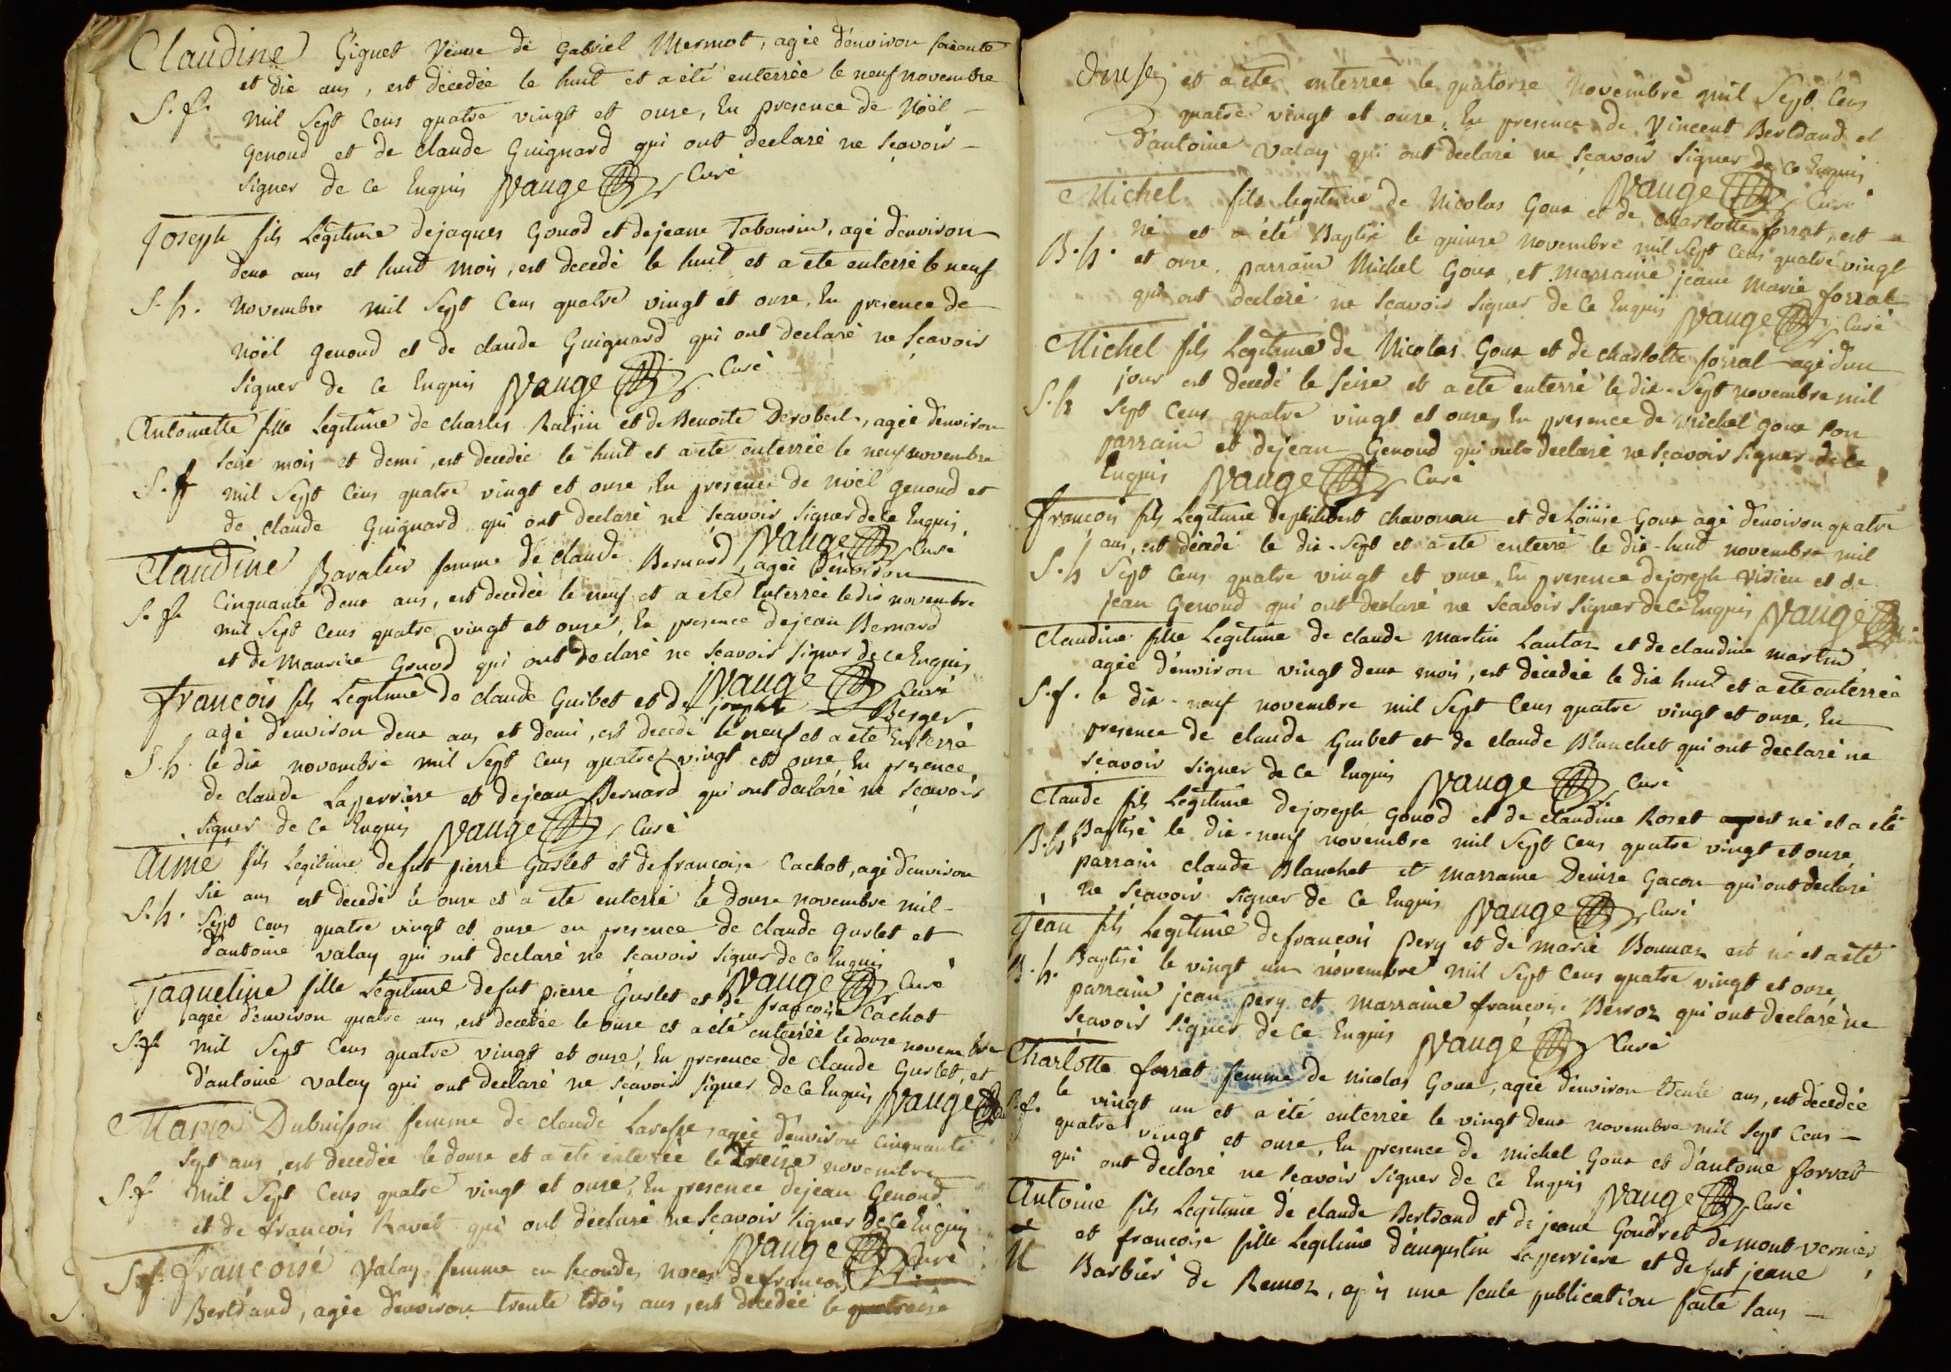 Claudine Giguet veuve de Gabriel Mermot, agée d'environ soixante
et dix ans, est décedée le huit et a été enterrée le neuf novembre
S. f. mil sept cens quatre vingt et onze, En presence de Noël
Genoud et de claude Guignard qui ont declaré ne sçavoir
signer de ce Enquis Vauge Curé
Joseph fils Légitime de jaques Gonod et de jeane Tabourin, agé d'environ
deux ans et huit mois, est decedé le huit et a été enterré le neuf
S. h. Novembre mil sept cens quatre vingt et onze, En presence de
Noël Genoud et de claude Guignard qui ont declaré ne sçavoir
signer de ce Enquis Vauge Curé
Antoinette fille Legitime de charles Raisin et de Benoite Derobert, agée d'environ
seize mois et demi, est decedée le huit et a été enterrée le neuf novembre
S. f mil sept cens quatre vingt et onze, En presence de Noël Genoud et
de claude Guignard qui ont declaré ne sçavoir signer de ce Enquis
Vauge Curé
Claudine femme de claude Bernard, agée d'environ
S. f. Cinquante deux ans, est decedée le neuf et a été Enterrée le dix novembre
mil sept cens quatre vingt et onze, En presence de jean Bernard
et de Maurice Gonod qui ont declaré ne sçavoir signer de ce Enquis
Vauge Curé
françois fils Légitime de claude Guibet et de josephte Berger
agé d'environ deux ans et demi, est decedé le neuf et a été Enterré
S. h. le dix novembre mil sept cens quatre vingt et onze En presence
de claude Laperriere et de jean Bernard qui ont declaré ne sçavoir
signer de ce Enquis Vauge Curé
Aimé fils Légitime de fut pierre Guslet et de francoise Cachot, agé d'environ
six ans est decedé le onze et a été enterré le douze novembre mil
S. h. sept cens quatre vingt et onze en presence de claude Guslet et
d'antoine valay qui ont declaré ne sçavoir signer de ce Enquis
Vauge Curé
jaqueline fille Légitime de fut pierre Guslet et de françoise Cachot
agée d'environ quatre ans, est decedée le onze et a été enterrée le douze novembre
S. f. mil sept cens quatre vingt et onze, En presence de claude Guslet, et
d'antoine valay qui ont declaré ne sçavoir signer de ce Enquis Vauge
Marie Dubuisson femme de claude agée d'environ cinquante
sept ans, est decedée le douze et a été enterrée le treize novembre
S. f mil sept cens quatre vingt et onze, En presence de jean Genoud
et de françois Ravet qui ont declaré ne sçavoir signer de ce Enquis
Vauge Curé
S. f. françoise Valay femme en secondes noces de françois
Bertrand, agée d'environ trente trois ans, est decedée le quatorze
douse et a été enterrée le quatorze Novembre mil sept cens
quatre vingt et onze, En presence de Vincent Bertrand et
d'antoine valay qui ont declaré ne sçavoir signer de ce Enquis
Vauge Curé
Michel fils legitime de Nicolas Goux et de charlotte forrat, est
né et a été Baptisé le quinze Novembre mil sept cens quatre vingt
B. h. et onze, parrain Michel Goux et marraine jeane Marie forrat
qui ont declaré ne sçavoir signer de ce Enquis Vauge Curé
Michel fils Legitime de Nicolas Goux et de charlotte forrat agé d'un
jour est decedé le seize et a été enterré le dix-sept novembre mil
S. h sept cens quatre vingt et onze, En presence de Michel Goux son
parrain et de jean Genoud qui ont declaré ne sçavoir signer de ce
Enquis Vauge Curé
françois fils Legitime de philibert chavonan et de Loüise Goux agé d'environ quatre
ans, est décedé le dix-sept et a été enterré le dix-huit novembre mil
S. h sept cens quatre vingt et onze, En presence de joseph et de
jean Genoud qui ont declaré ne sçavoir signer de ce Enquis Vauge
Claudine fille Legitime de claude Martin Lantoz et de claudine martin
agée d'environ vingt deux mois, est décedée le dix huit et a été enterrée
S. f. le dix-neuf novembre mil sept cens quatre vingt et onze, En
presence de claude Guibet et de claude Blanchet qui ont declaré ne
sçavoir signer de ce Enquis Vauge Curé
Claude fils Légitime de joseph Gonod et de claudine Roset est né et a été
B. h Baptisé le dix-neuf novembre mil sept cens quatre vingt et onze,
parrain claude Blanchet et Marraine Denise Gacon qui ont declaré
ne sçavoir signer de ce Enquis Vauge Curé
jean fils Légitime de françois pery et de marie Bonnaz est né et a été
B. h. Baptisé le vingt un novembre mil sept cens quatre vingt et onze,
parrain jean pery et marraine françoise Berroz qui ont declaré ne
sçavoir signer de ce Enquis Vauge Curé
Charlotte forrat femme de Nicolas Goux, agée d'environ trente ans, est decedée
S. f. le vingt un et a été enterrée le vingt deux novembre mil sept cens
quatre vingt et onze, En presence de Michel Goux et d'antoine forrat
qui ont declaré ne sçavoir signer de ce Enquis Vauge Curé
Antoine fils Légitime de claude Bertrand et de jeane Goudret de mont vernier
et françoise fille Legitime d'augustin Laperriere et de fut jeane
M Barbier de Remoz, après une seule publication faite sans